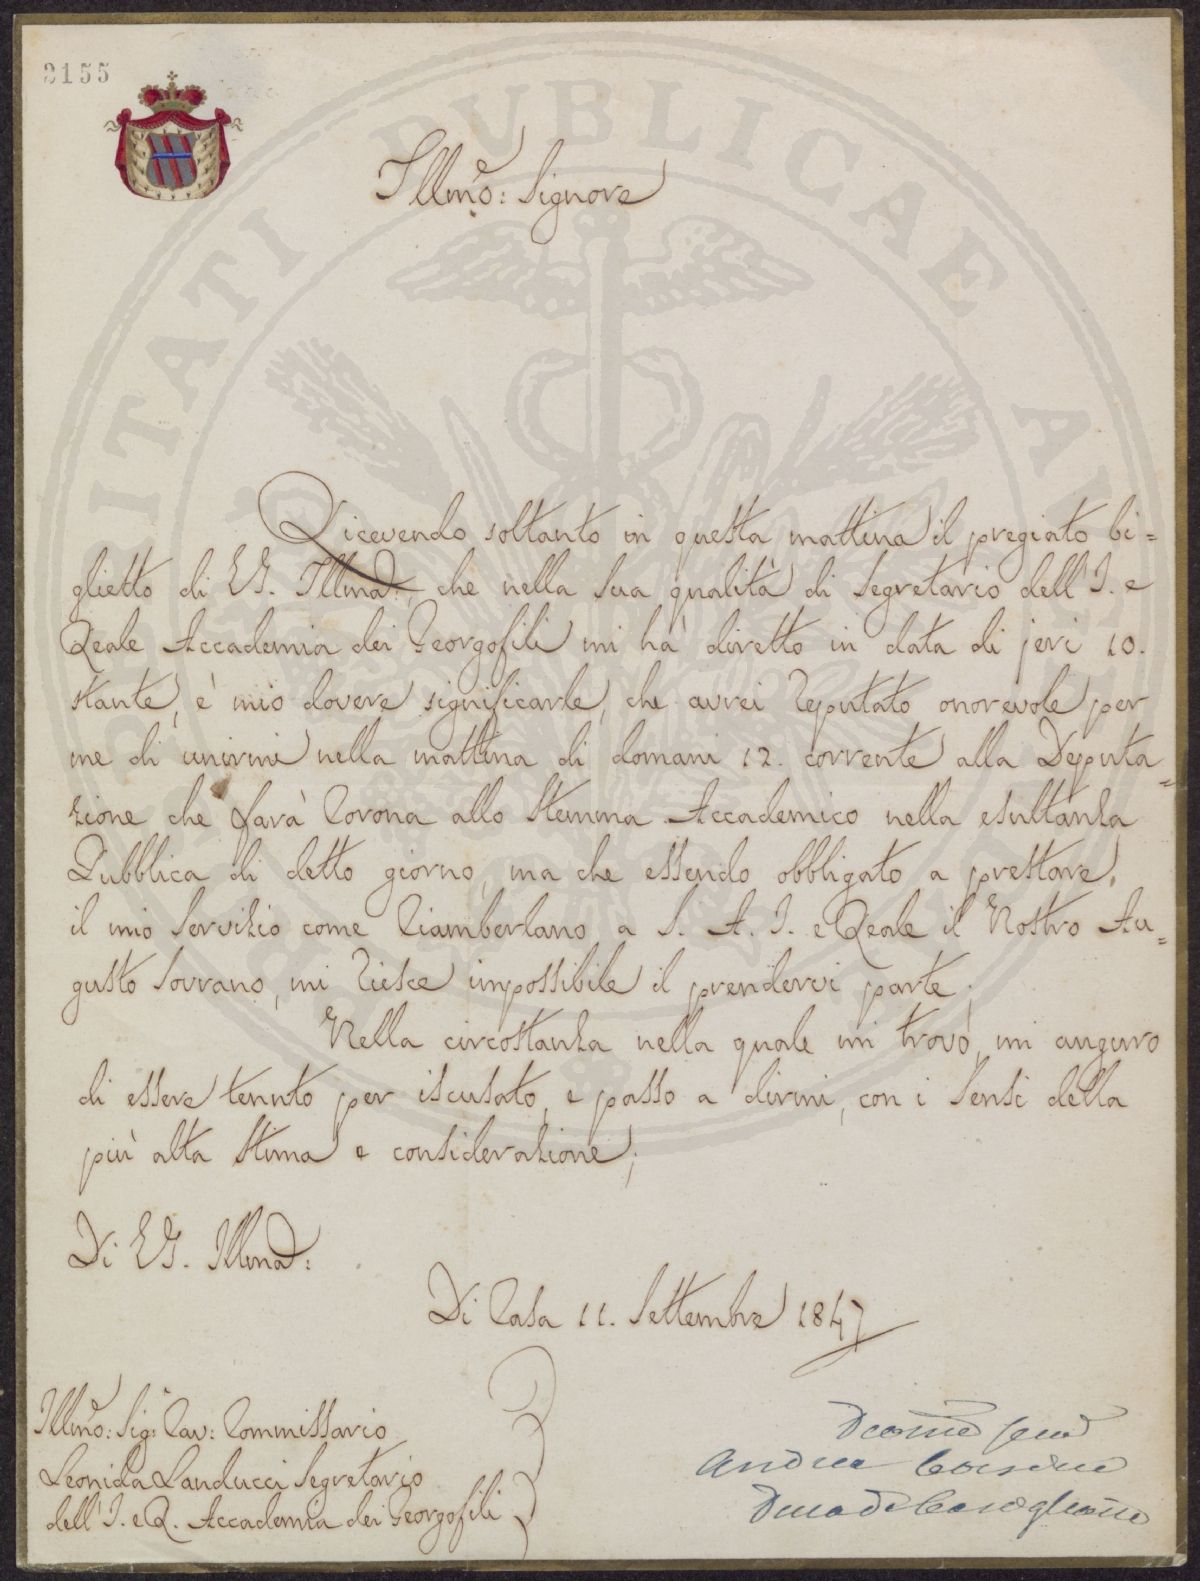 2155
Illmo: Signore
Ricevendo soltanto in questa mattina il pregiato bi=
glietto di VS. Illma: che nella Sua qualità di Segretario dell'I. e
Reale Accademia dei Georgofili mi ha diretto in data di jeri 10.
stante, è mio dovere significarle, che avrei reputato onorevole per
me di unirmi nella mattina di domani 12. corrente alla Deputa=
zione che farà Corona allo Stemma Accademico nella esultanza
Pubblica di detto giorno, ma che essendo obbligato a prestare,
il mio Servizio come Ciamberlano a S. A. I. e Reale il Nostro Au=
gusto Sovrano, mi riesce impossibile il prendervi parte.
Nella circostanza nella quale mi trovo, mi auguro
di essere tenuto per iscusato, e passo a dirmi, con i Sensi della
più alta Stima e considerazione;
Di VS. Illma:
Di Casa 11. Settembre 1847
Illmo: Sig: Cav: Commissario
Leonida Landucci Segretario
dell'I. e R. Accademia dei Georgofili
Andrea Corsini
Duca di Casigliano
PROSPERITATI PUBLICAE AUGENDAE